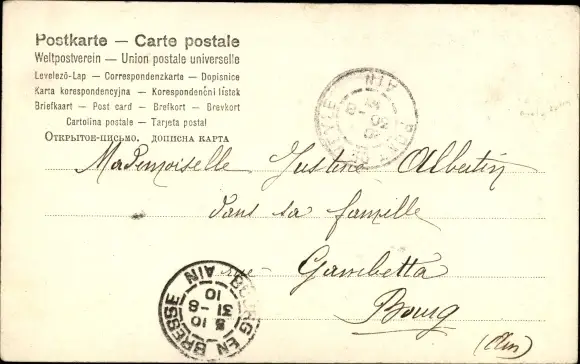 Postkarte — Carte postale
Weltpostverein — Union postale universelle
Levelező-Lap — Correspondenzkarte — Dopisnice
Karta korespondencyjna — Korespondenční lístek
Briefkaart — Post card — Brefkort — Brevkort
Cartolina postale — Tarjeta postal
Открытое-письмо. дописна карта
Mademoiselle Justine Albertin
dans sa famille
rue Gambetta
Bourg
(Ain)
BOURG EN BRESSE
AIN
8 10
31 - 8
10
AIN